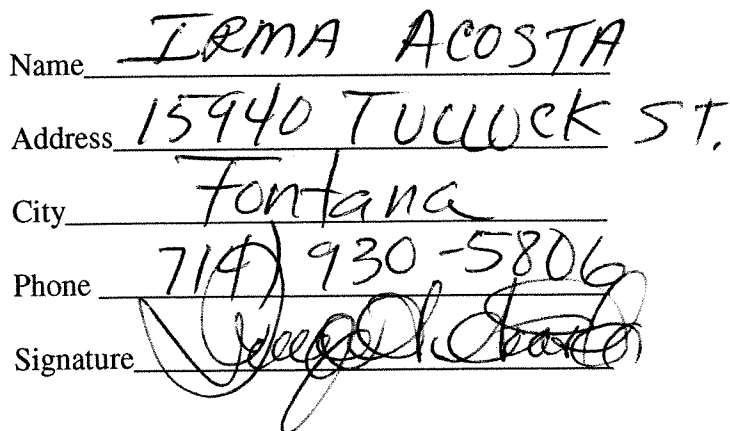 Name IRMA ACOSTA
Address 15940 TULLOCK ST.
City Fontana
Phone 714) 930-5806
Signature